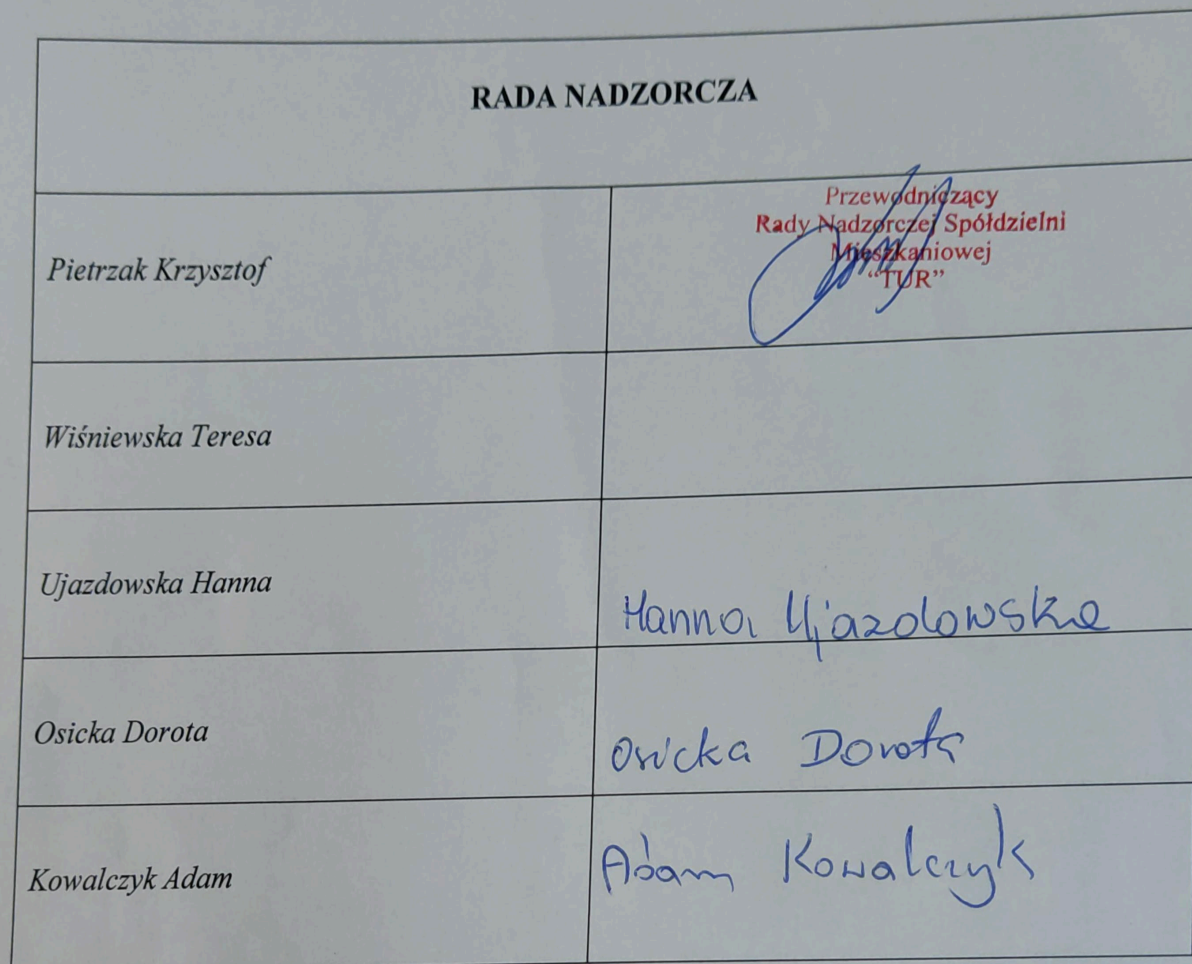 RADA NADZORCZA
Pietrzak Krzysztof
Przewodniczący
Rady Nadzorczej Spółdzielni
Mieszkaniowej
“TUR”
Wiśniewska Teresa
Ujazdowska Hanna
Hanna Ujazdowska
Osicka Dorota
Osicka Dorota
Kowalczyk Adam
Adam Kowalczyk